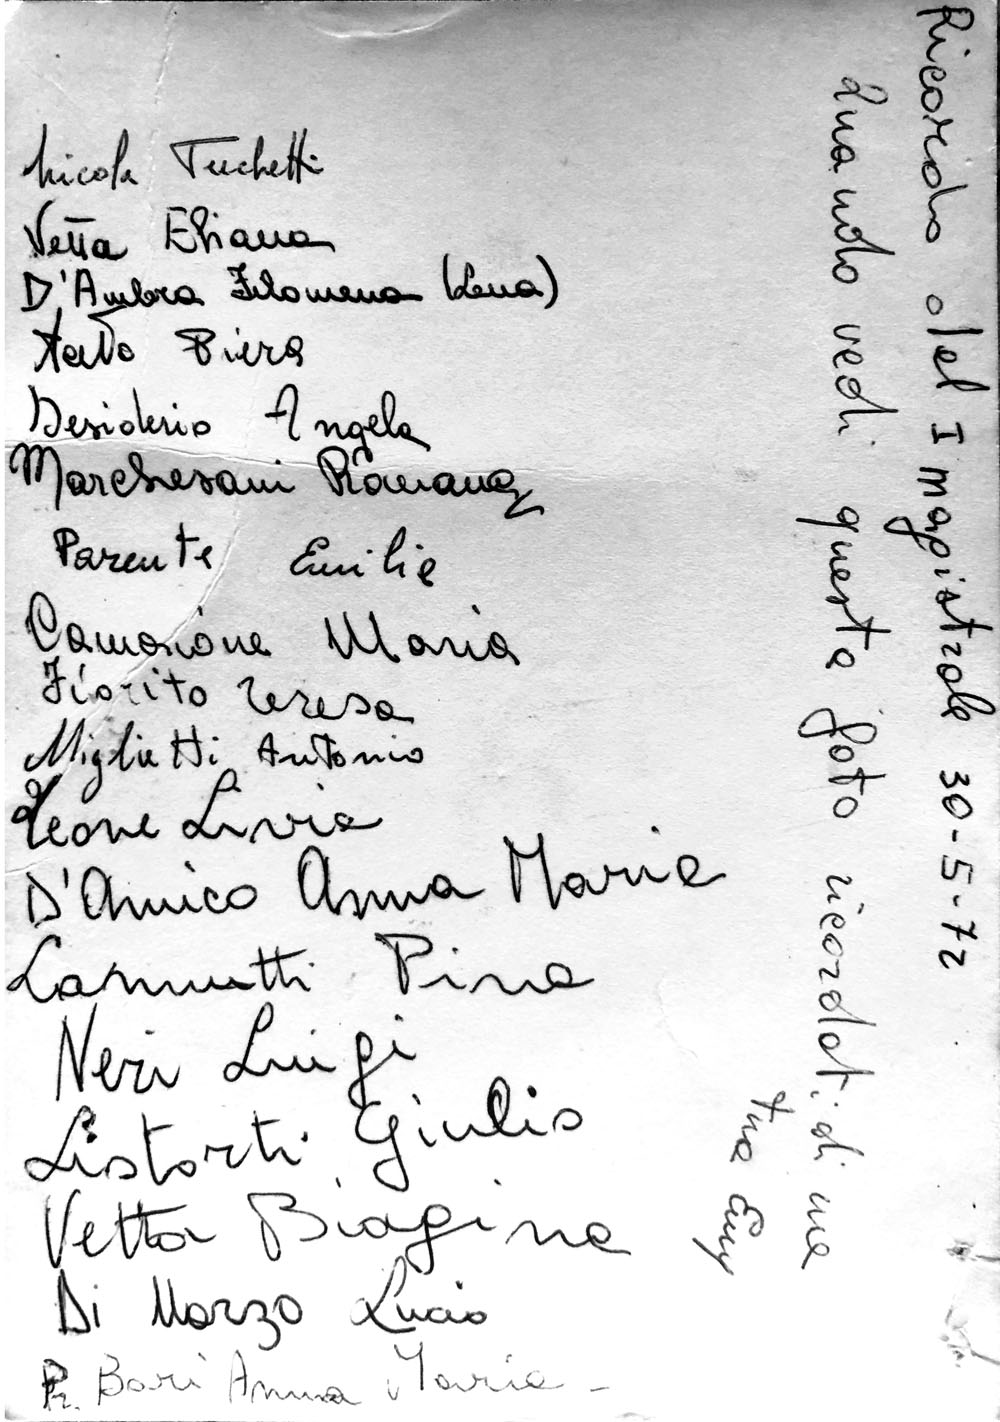 Nicola Tuchetti
Vetta Eliana
D'Ambra Filomena (Lena)
Piera
Desiderio Angela
Marchesani Romana
Parente Emilia
Camarione Maria
Fiorito Teresa
Miglietti Antonio
Leone Livia
D'Amico Anna Maria
Lannutti Pina
Neri Luigi
Listorti Giulio
Vetta Biagina
Di Marzo Lucio
Pr. Bari Anna Maria -
Ricordo del I magistrale 30-5-72
Quando vedi questa foto ricordati di me
tua Emy